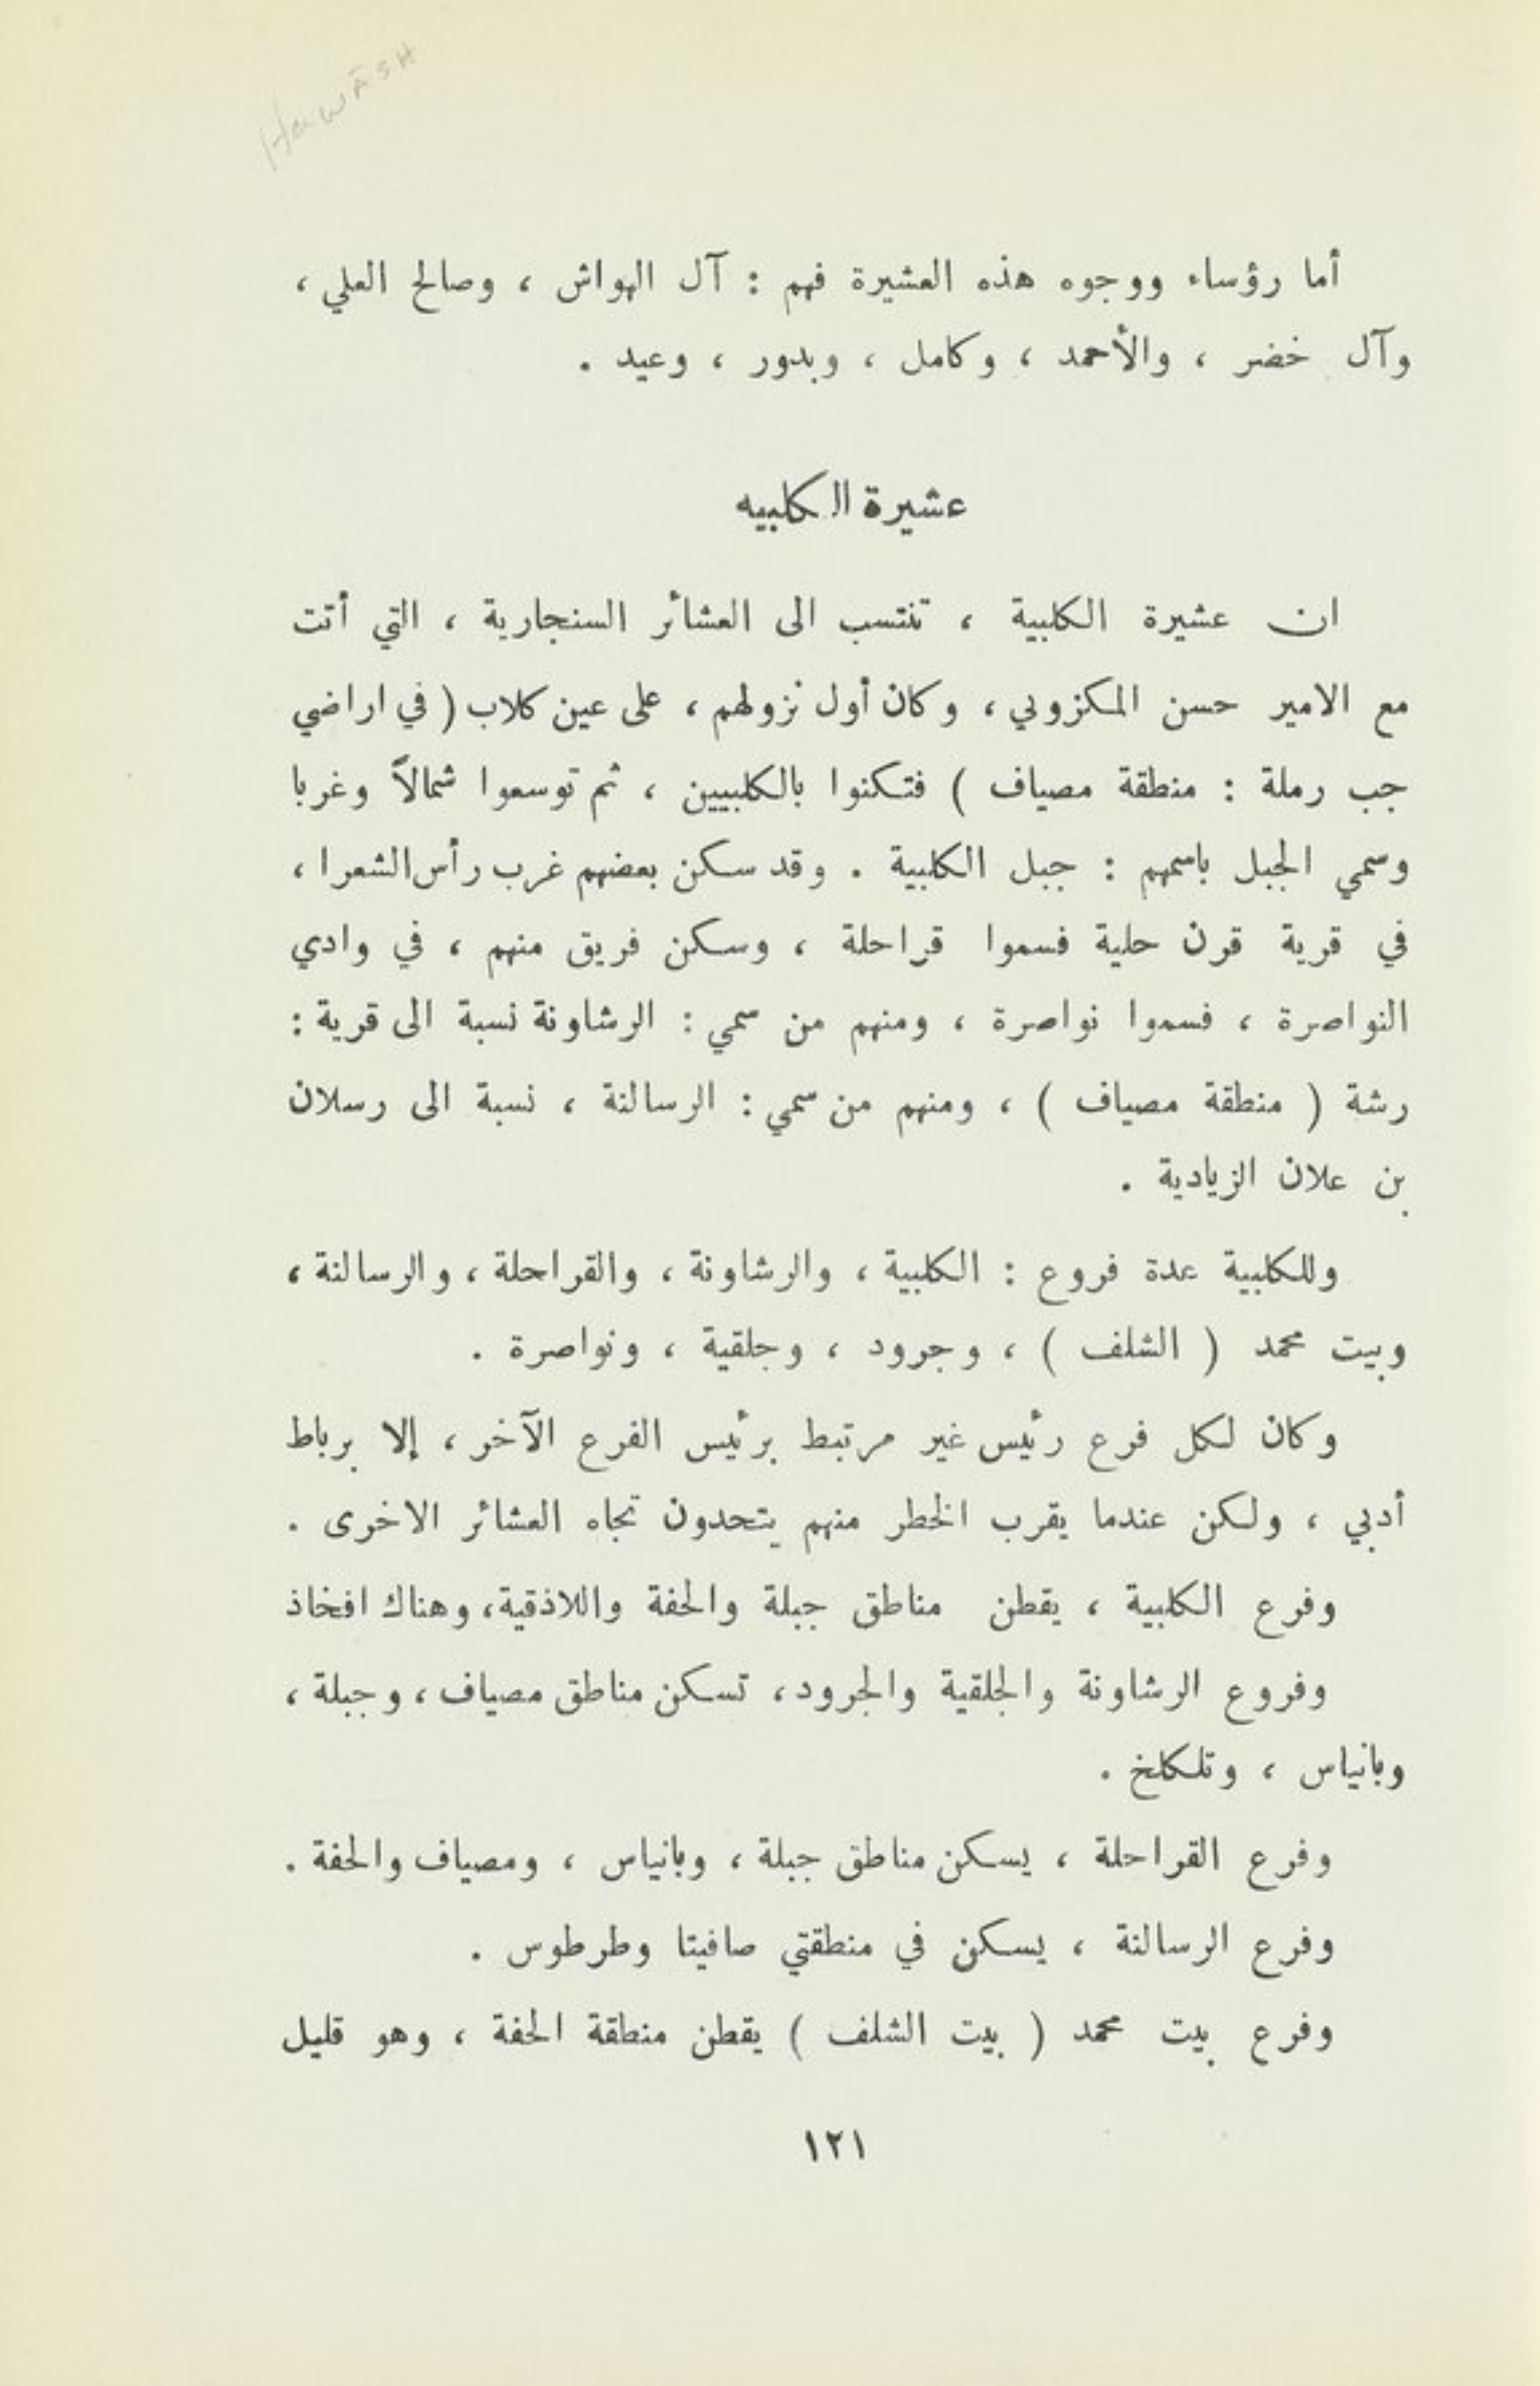 Hawāsh
أما رؤساء ووجوه هذه العشيرة فهم : آل الهواش ، وصالح العلي ،
وآل خضر ، والأحمد ، وكامل ، وبدور ، وعيد .
عشيرة الكلبيه
ان عشيرة الكلبية ، تنتسب الى العشائر السنجارية ، التي أتت
مع الامير حسن المكزوني ، وكان أول نزولهم ، على عين كلاب ( في اراضي
جب رملة : منطقة مصياف ) فتكنوا بالكلبيين ، ثم توسعوا شمالاً وغربا
وسمي الجبل باسمهم : جبل الكلبية . وقد سكن بعضهم غرب رأس الشعرا ،
في قرية قرن حلية فسموا قراحلة ، وسكن فريق منهم ، في وادي
النواصرة ، فسموا نواصرة ، ومنهم من سمي : الرشاونة نسبة الى قرية :
رشة ( منطقة مصياف ) ، ومنهم من سمي : الرسالنة ، نسبة الى رسلان
بن علان الزيادية .
وللكلبية عدة فروع : الكلبية ، والرشاونة ، والقراحلة ، والرسالنة ،
وبيت محمد ( الشلف ) ، وجرود ، وجلقية ، ونواصرة .
وكان لكل فرع رئيس غير مرتبط برئيس الفرع الآخر ، إلا برباط
أدبي ، ولكن عندما يقرب الخطر منهم يتحدون تجاه العشائر الاخرى .
وفرع الكلبية ، يقطن مناطق جبلة والحفة واللاذقية، وهناك افخاذ
وفروع الرشاونة والجلقية والجرود، تسكن مناطق مصياف ، وجبلة ،
وبانياس ، وتلكلخ .
وفرع القراحلة ، يسكن مناطق جبلة ، وبانياس ، ومصياف والحفة .
وفرع الرسالنة ، يسكن في منطقتي صافيتا وطرطوس .
وفرع بيت محمد ( بيت الشلف ) يقطن منطقة الحفة ، وهو قليل
١٢١